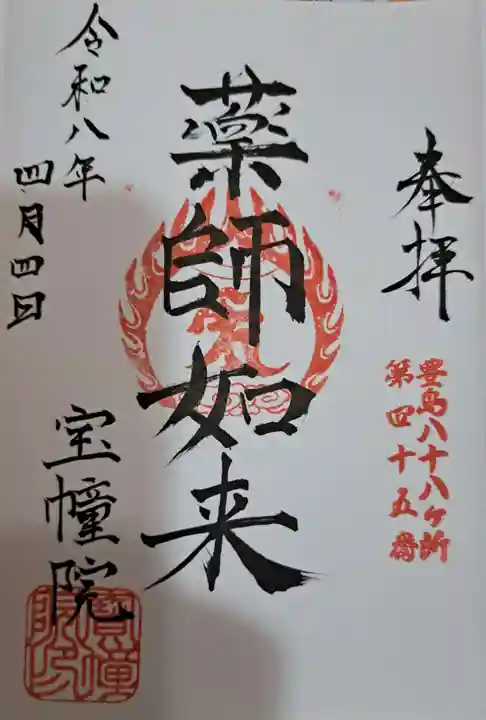 奉拝
豊島八十八ヶ所
第四十五番
薬師如来
令和八年
四月四日
宝幢院
寶幢院印